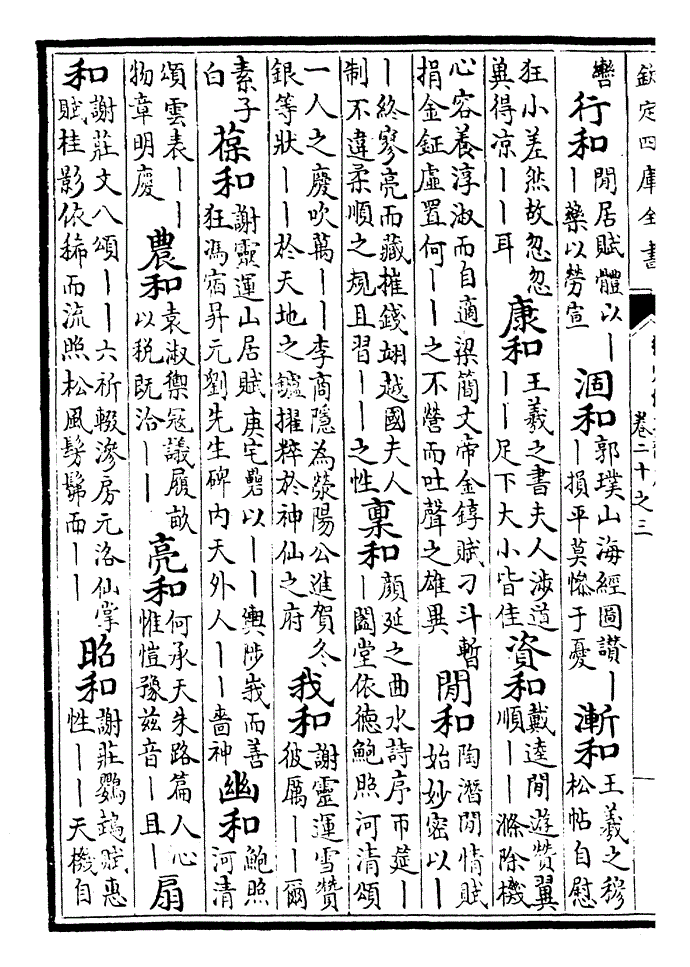 欽定四庫全書
卷二十之三
轡
行和
閒居賦體以丨
丨藥以勞宣
涸和
郭璞山海經圖讃丨
丨損平莫慘于憂
漸和
王羲之穆
松帖自慰
狂小差然故忽忽
兾得凉丨丨耳
康和
王羲之書夫人涉道
丨丨足下大小皆佳
資和
戴逵閒遊赞翼
順丨丨滌除機
心容養淳淑而自適梁簡文帝金錞賦刁斗暫
捐金鉦虚置何丨丨之不營而吐聲之雄異
閒和
陶潛閒情賦
始妙密以丨
丨終寥亮而藏摧錢翊越國夫人
制不違柔順之規且習丨丨之性
稟和
顔延之曲水詩序帀筵丨
丨闔堂依德鮑照河清頌
一人之慶吹萬丨丨李商隱為滎陽公進賀冬
銀等狀丨丨於天地之鑪擢粹於神仙之府
我和
謝靈運雪贊
彼厲丨丨爾
素子
白
葆和
謝靈運山居賦庚宅礨以丨丨輿陟峩而善
狂馮宿昇元劉先生碑内天外人丨丨嗇神
幽和
鮑照
河清
頌雲表丨丨
物章明慶
農和
袁淑禦寇議履畝
以税既洽丨丨
亮和
何承天朱路篇人心
惟愷豫兹音丨且丨
扇
和
謝莊文八頌丨丨六祈輟滲房元洛仙掌
賦桂影依稀而流照松風髣髴而丨丨
昭和
謝莊鸚鵡賦惠
性丨丨天機自